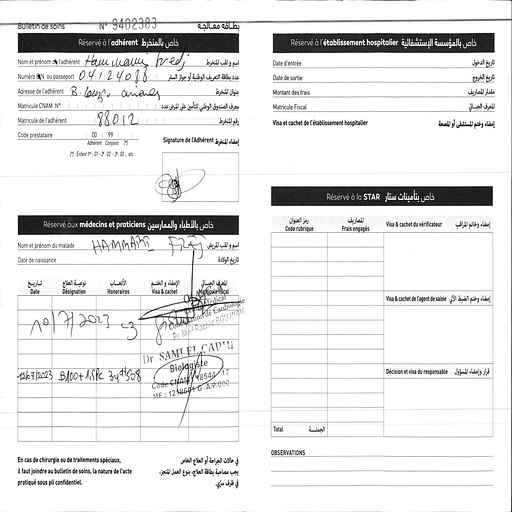 Bulletin de soins N° 9402383 بطاقة معالجة
Réservé à l'adhérent خاص بالمنخرط
Nom et prénom de l'adhérent Hammami Fredj اسم و لقب المنخرط
Numéro CIN ou passeport 04124088 عدد بطاقة التعريف الوطنية أو جواز السفر
Adresse de l'adhérent عنوان المنخرط
Matricule CNAM N° معرف الصندوق الوطني للتأمين على المرض عدد
Matricule de l'adhérent 88012 رقم المنخرط
Code prestataire 00 99
Adhérent Conjoint (*)
(*) : Enfant 1er : 01 - 2 : 02 - 3 : 03 ... etc
Signature de l'Adhérent إمضاء المنخرط
Réservé aux médecins et praticiens خاص بالأطباء والممارسين
Nom et prénom du malade HAMMAMI Frej اسم و لقب المريض
Date de naissance تاريخ الولادة
تاريخ نوعية العلاج الأتعاب الإمضاء و الختم المعرف الجبائي
Date Désignation Honoraires Visa & cachet Matricule Fiscal
10/7/2023
Dr. SAMI EL CADHI
Biologiste
12/07/2023 B100+1
Code CNAM
En cas de chirurgie ou de traitements spéciaux,
il faut joindre au bulletin de soins, la nature de l'acte
pratiqué sous pli confidentiel.
في حالات الجراحة أو العلاج الخاص
يجب مصاحبة بطاقة العلاج، بنوع العمل المنجز،
في ظرف سرّي.
Réservé à l'établissement hospitalier خاص بالمؤسسة الإستشفائية
Date d'entrée تاريخ الدخول
Date de sortie تاريخ الخروج
Montant des frais مقدار المصاريف
Matricule Fiscal المعرف الجبائي
Visa et cachet de l'établissement hospitalier إمضاء وختم المستشفى أو المصحة
Réservé à la STAR خاص بتأمينات ستار
رمز العنوان المصاريف
Code rubrique Frais engagés
Visa & cachet du vérificateur إمضاء وخاتم المراقب
Visa & cachet de l'agent de saisie إمضاء وختم الضبط الآلي
Décision et visa du responsable قرار وإمضاء المسؤول
Total الجملة
OBSERVATIONS